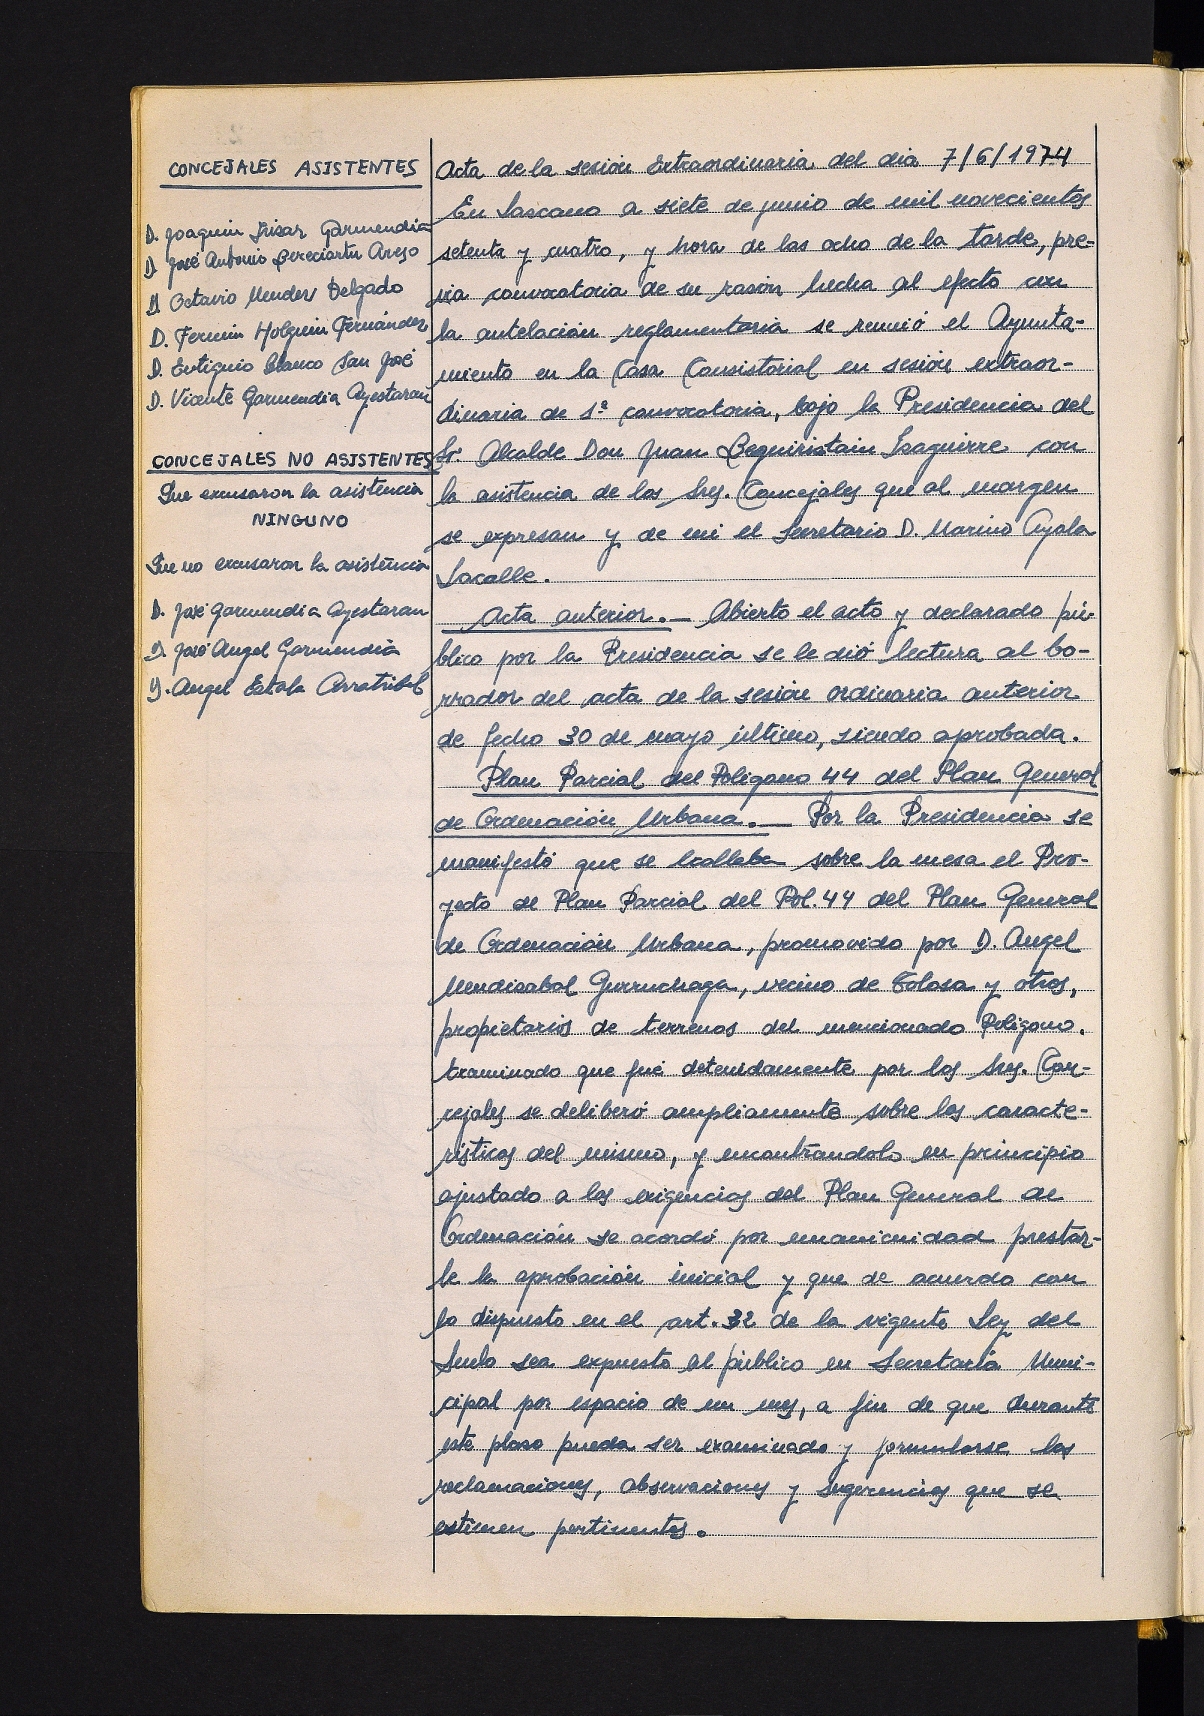 CONCEJALES ASISTENTES
D. Joaquin Irizar Garmendia
D. José Antonio Bereciartu Arejo
D. Octavio Mendez Delgado
D. Fermin Holguin Fernández
D. Eutiquio Blanco San José
D. Vicente Garmendia Ayestaran
CONCEJALES NO ASISTENTES
Que excusaron la asistencia
NINGUNO
Que no excusaron la asistencia
D. José Garmendia Ayestaran
D. José Angel Garmendia
D. Angel Arratibel
Acta de la sesión Extraordinaria del dia 7/6/1974
En Lazcano a siete de junio de mil novecientos
setenta y cuatro, y hora de las ocho de la tarde, pre-
via convocatoria de su razón hecha al efecto con
la antelación reglamentaria se reunió el Ayunta-
miento en la Casa Consistorial en sesión extraor-
dinaria de 1ª convocatoria, bajo la Presidencia del
Sr. Alcalde Don Juan Beguiristain Izaguirre con
la asistencia de los Sres. Concejales que al margen
se expresan y de mi el Secretario D. Marino Ayala
Lacalle.
Acta anterior.— Abierto el acto y declarado pú-
blico por la Presidencia se le dió lectura al bo-
rrador del acta de la sesión ordinaria anterior
de fecha 30 de mayo último, siendo aprobada.
Plan Parcial del Poligono 44 del Plan General
de Ordenación Urbana.— Por la Presidencia se
manifestó que se hallaba sobre la mesa el Pro-
yecto de Plan Parcial del Pol. 44 del Plan General
de Ordenación Urbana, promovido por D. Angel
Mendizabal Gurruchaga, vecino de Tolosa y otros,
propietarios de terrenos del mencionado Poligono.
Examinado que fué detenidamente por los Sres. Con-
cejales se deliberó ampliamente sobre las caracte-
rísticas del mismo, y encontrandolo en principio
ajustado a las exigencias del Plan General de
Ordenación se acordó por unanimidad prestar-
le la aprobación inicial y que de acuerdo con
lo dispuesto en el art. 32 de la vigente Ley del
Suelo sea expuesto al público en Secretaría Muni-
cipal por espacio de un mes, a fin de que durante
este plazo pueda ser examinado y formularse las
reclamaciones, observaciones y sugerencias que se
estimen pertinentes.